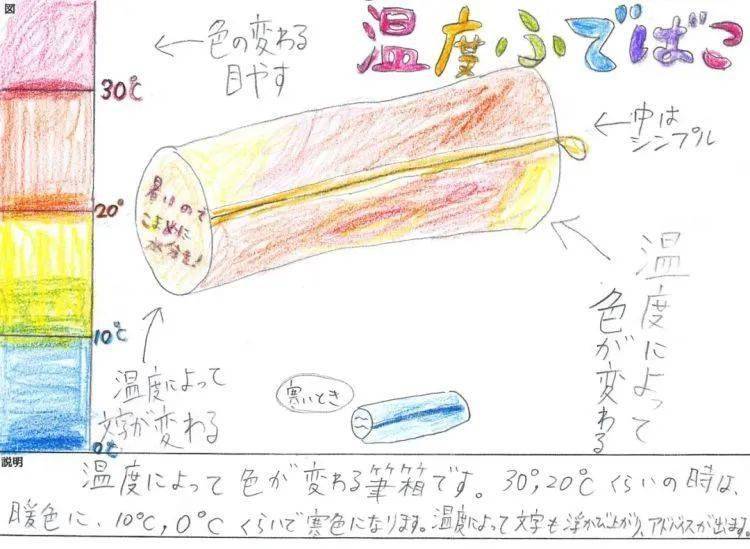 図
温度ふでばこ
←色の変わる
目やす
30℃
20°
10℃
0℃
←中は
シンプル
暑いので
こまめに
水分を!
温度によって
色が変わる
温度によって
文字が変わる
寒いとき
説明
温度によって色が変わる筆箱です。30°,20℃くらいの時は、
暖色に、10℃,0℃くらいで寒色になります。温度によって文字も浮かび上がり、アドバイスが出ます。